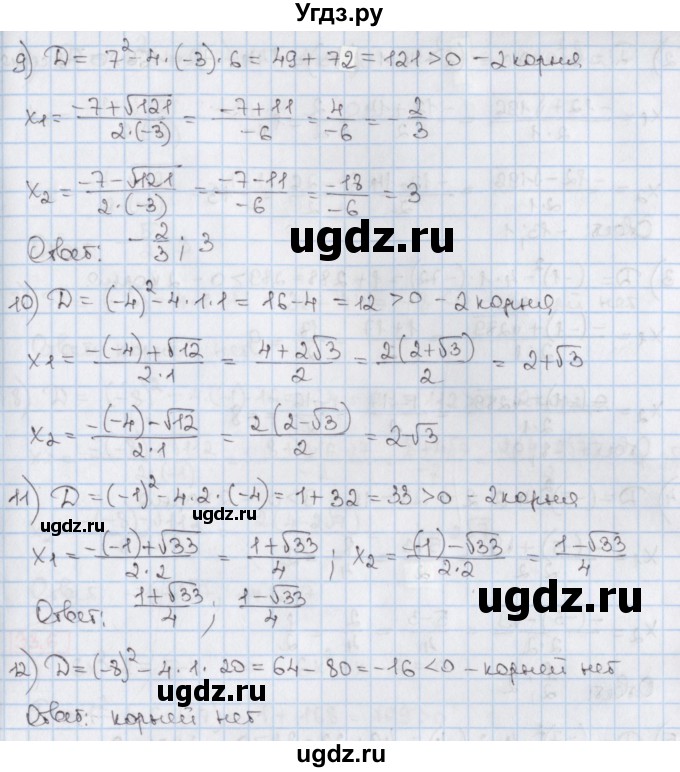 Угдз.ру
9) D = 7² - 4·(-3)·6 = 49 + 72 = 121 > 0 - 2 корня
x₁ = (-7+√121)/(2·(-3)) = (-7+11)/(-6) = 4/(-6) = -2/3
x₂ = (-7-√121)/(2·(-3)) = (-7-11)/(-6) = (-18)/(-6) = 3
ugdz.ru
Ответ: -2/3; 3
10) D = (-4)² - 4·1·1 = 16 - 4 = 12 > 0 - 2 корня
x₁ = (-(-4)+√12)/(2·1) = (4+2√3)/2 = (2(2+√3))/2 = 2+√3
x₂ = (-(-4)-√12)/(2·1) = (2(2-√3))/2 = 2-√3
11) D = (-1)² - 4·2·(-4) = 1 + 32 = 33 > 0 - 2 корня
ugdz.ru ugdz.ru
x₁ = (-(-1)+√33)/(2·2) = (1+√33)/4; x₂ = (-(-1)-√33)/(2·2) = (1-√33)/4
ugdz.ru
Ответ: (1+√33)/4; (1-√33)/4
12) D = (-8)² - 4·1·20 = 64 - 80 = -16 < 0 - корней нет
ugdz.ru
Ответ: корней нет
ugdz.ru